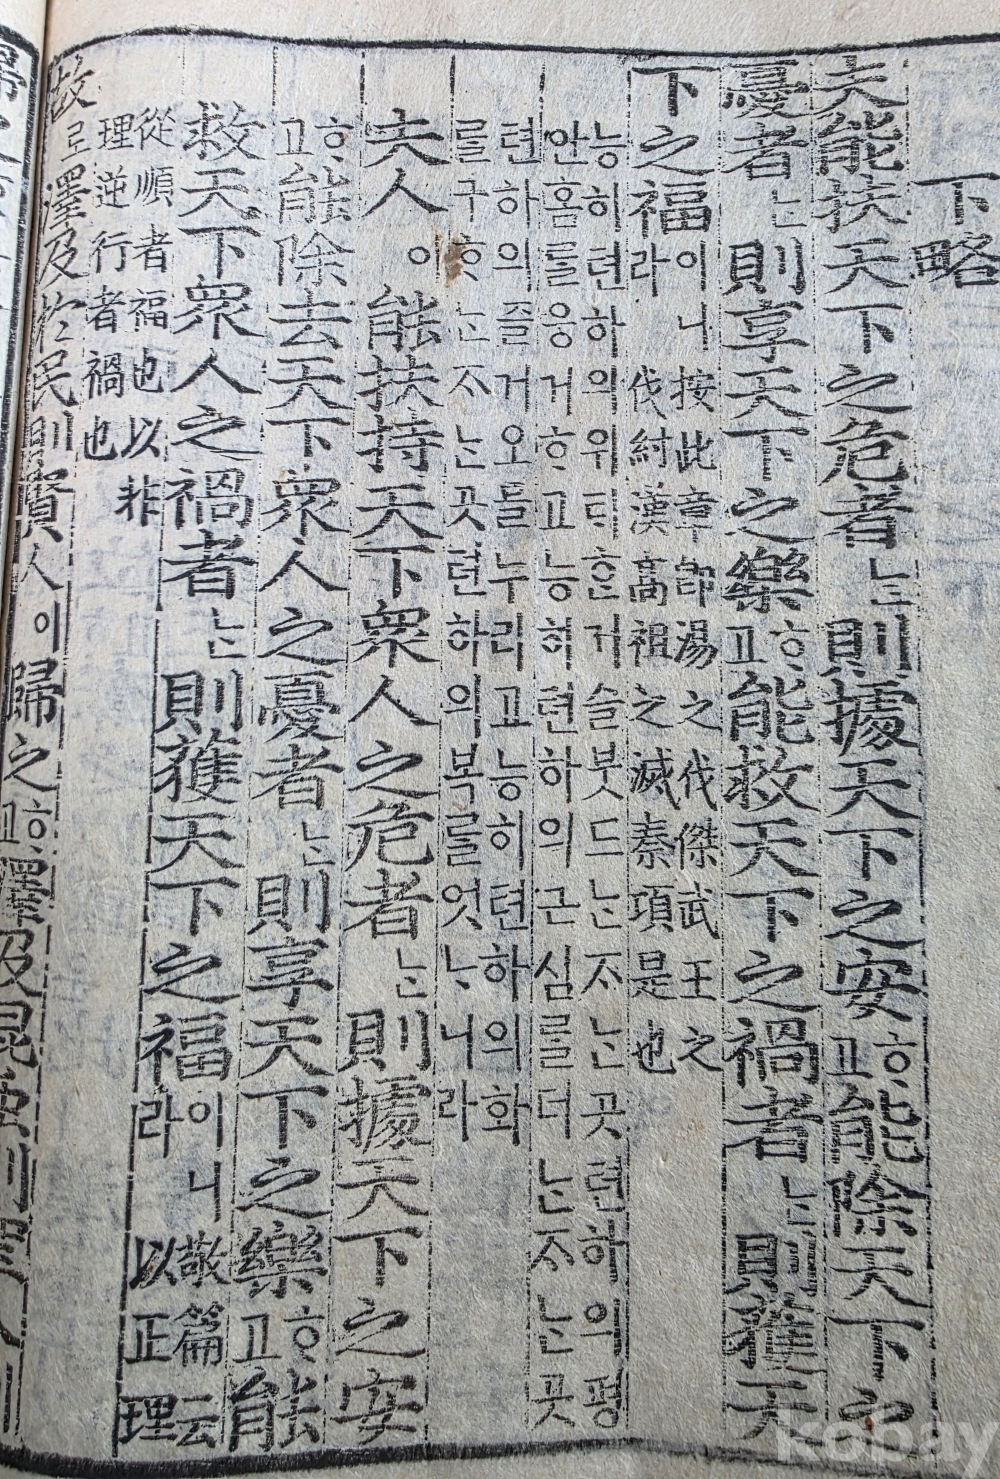 下略
夫能扶天下之危者ᄂᆞᆫ則據天下之安ᄒᆞ고能除天下之
憂者ᄂᆞᆫ則享天下之樂ᄒᆞ고能救天下之禍者ᄂᆞᆫ則獲天
下之福이니라 按此章卽湯之伐傑武王之
伐紂漢高祖之滅秦項是也
능히텬하의위ᄐᆡ흔거슬붓드ᄂᆞᆫᄌᆞᄂᆞᆫ곳텬하의평
안홈를응거ᄒᆞ고능히텬하의근심를더ᄂᆞᆫᄌᆞᄂᆞᆫ곳
텬하의즐거오믈누리고능히텬하의화
를구ᄒᆞᄂᆞᆫᄌᆞᄂᆞᆫ곳텬하의복를엇ᄂᆞ니라
夫人이能扶持天下衆人之危者ᄂᆞᆫ則據天下之安
ᄒᆞ고能除去天下衆人之憂者ᄂᆞᆫ則享天下之樂ᄒᆞ고能
救天下衆人之禍者ᄂᆞᆫ則獲天下之福이니라 敬篇云
以正理
從順者福也以非
理逆行者禍也
故로澤及於民則賢人이歸之ᄒᆞ고澤及昆虫則